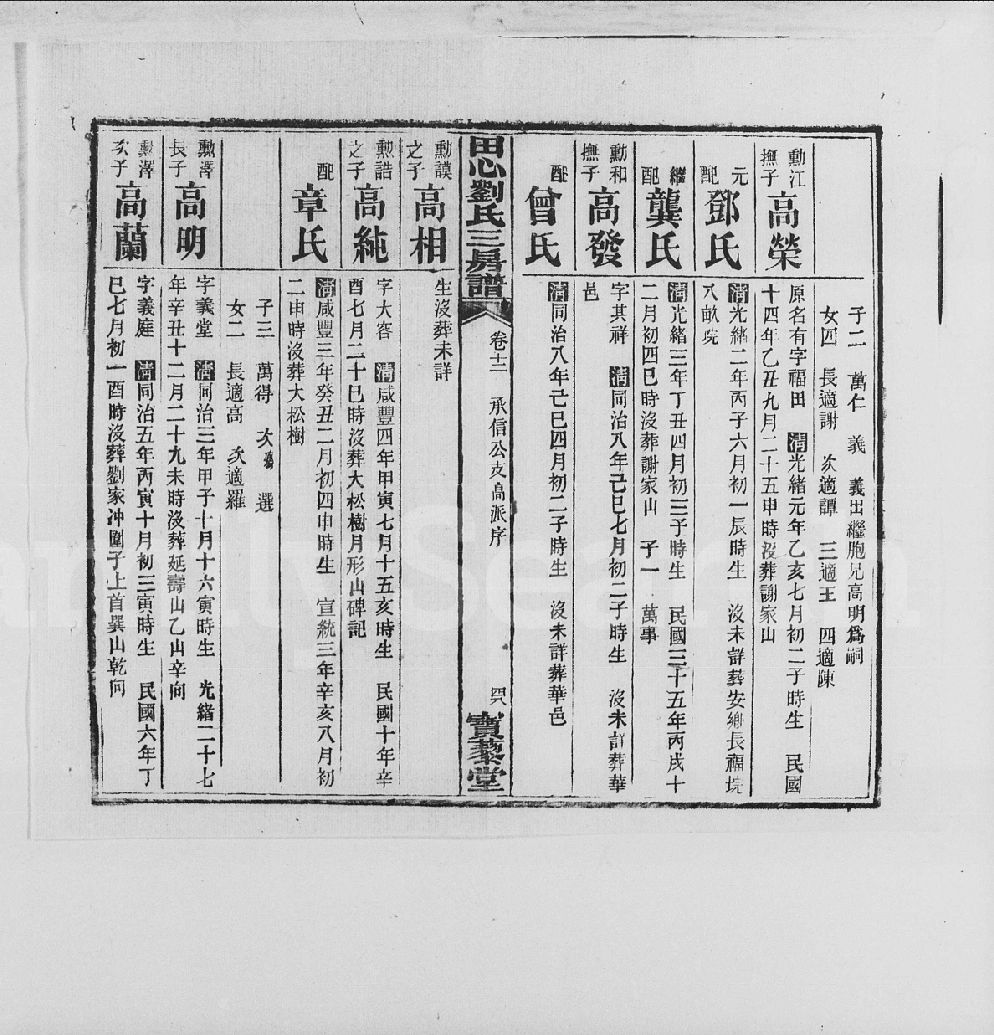 子二 萬仁 義 義出繼胞兄高明爲嗣
女四 長適謝 次適譚 三適王 四適陳
勳江
撫子
高榮
原名有字福田 清光緒元年乙亥七月初二子時生 民國
十四年乙丑九月二十五申時沒葬謝家山
元
配
鄧氏
清光緒二年丙子六月初一辰時生 沒未詳葬安鄉長福垸
八畝垸
繼
配
龔氏
清光緒三年丁丑四月初三子時生 民國三十五年丙戌十
二月初四巳時沒葬謝家山 子一 萬事
勳和
撫子
高發
字其祥 清同治八年己巳七月初二子時生 沒未詳葬華
邑
配
曾氏
清同治八年己巳四月初二子時生 沒未詳葬華邑
田心劉氏三房譜
卷十二 承信公支高派序
寶藜堂
勳謨
之子
高相
生沒葬未詳
勳誥
之子
高純
字大容 清咸豐四年甲寅七月十五亥時生 民國十年辛
酉七月二十巳時沒葬大松樹月形山碑記
配
章氏
清咸豐三年癸丑二月初四申時生 宣統三年辛亥八月初
二申時沒葬大松樹
子三 萬得 次 選
女二 長適高 次適羅
勳澤
長子
高明
字義堂 清同治三年甲子十月十六寅時生 光緒二十七
年辛丑十二月二十九未時沒葬延壽山乙山辛向
勳澤
次子
高蘭
字義庭 清同治五年丙寅十月初三寅時生 民國六年丁
巳七月初一酉時沒葬劉家冲團子上首巽山乾向